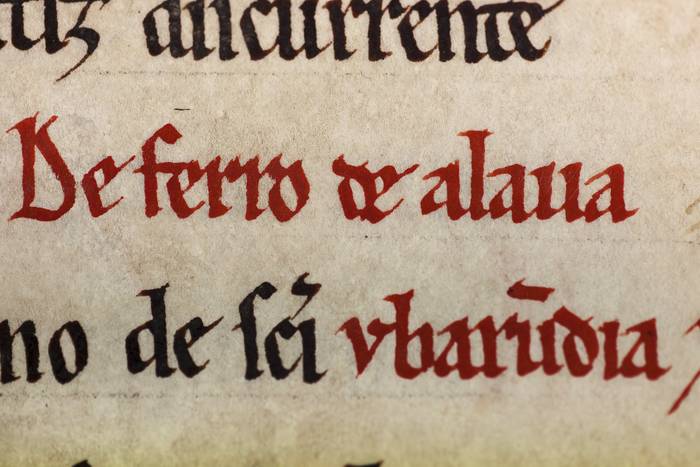 ancurrente
De ferro de alaua
no de sci̅ vbaru̅dia